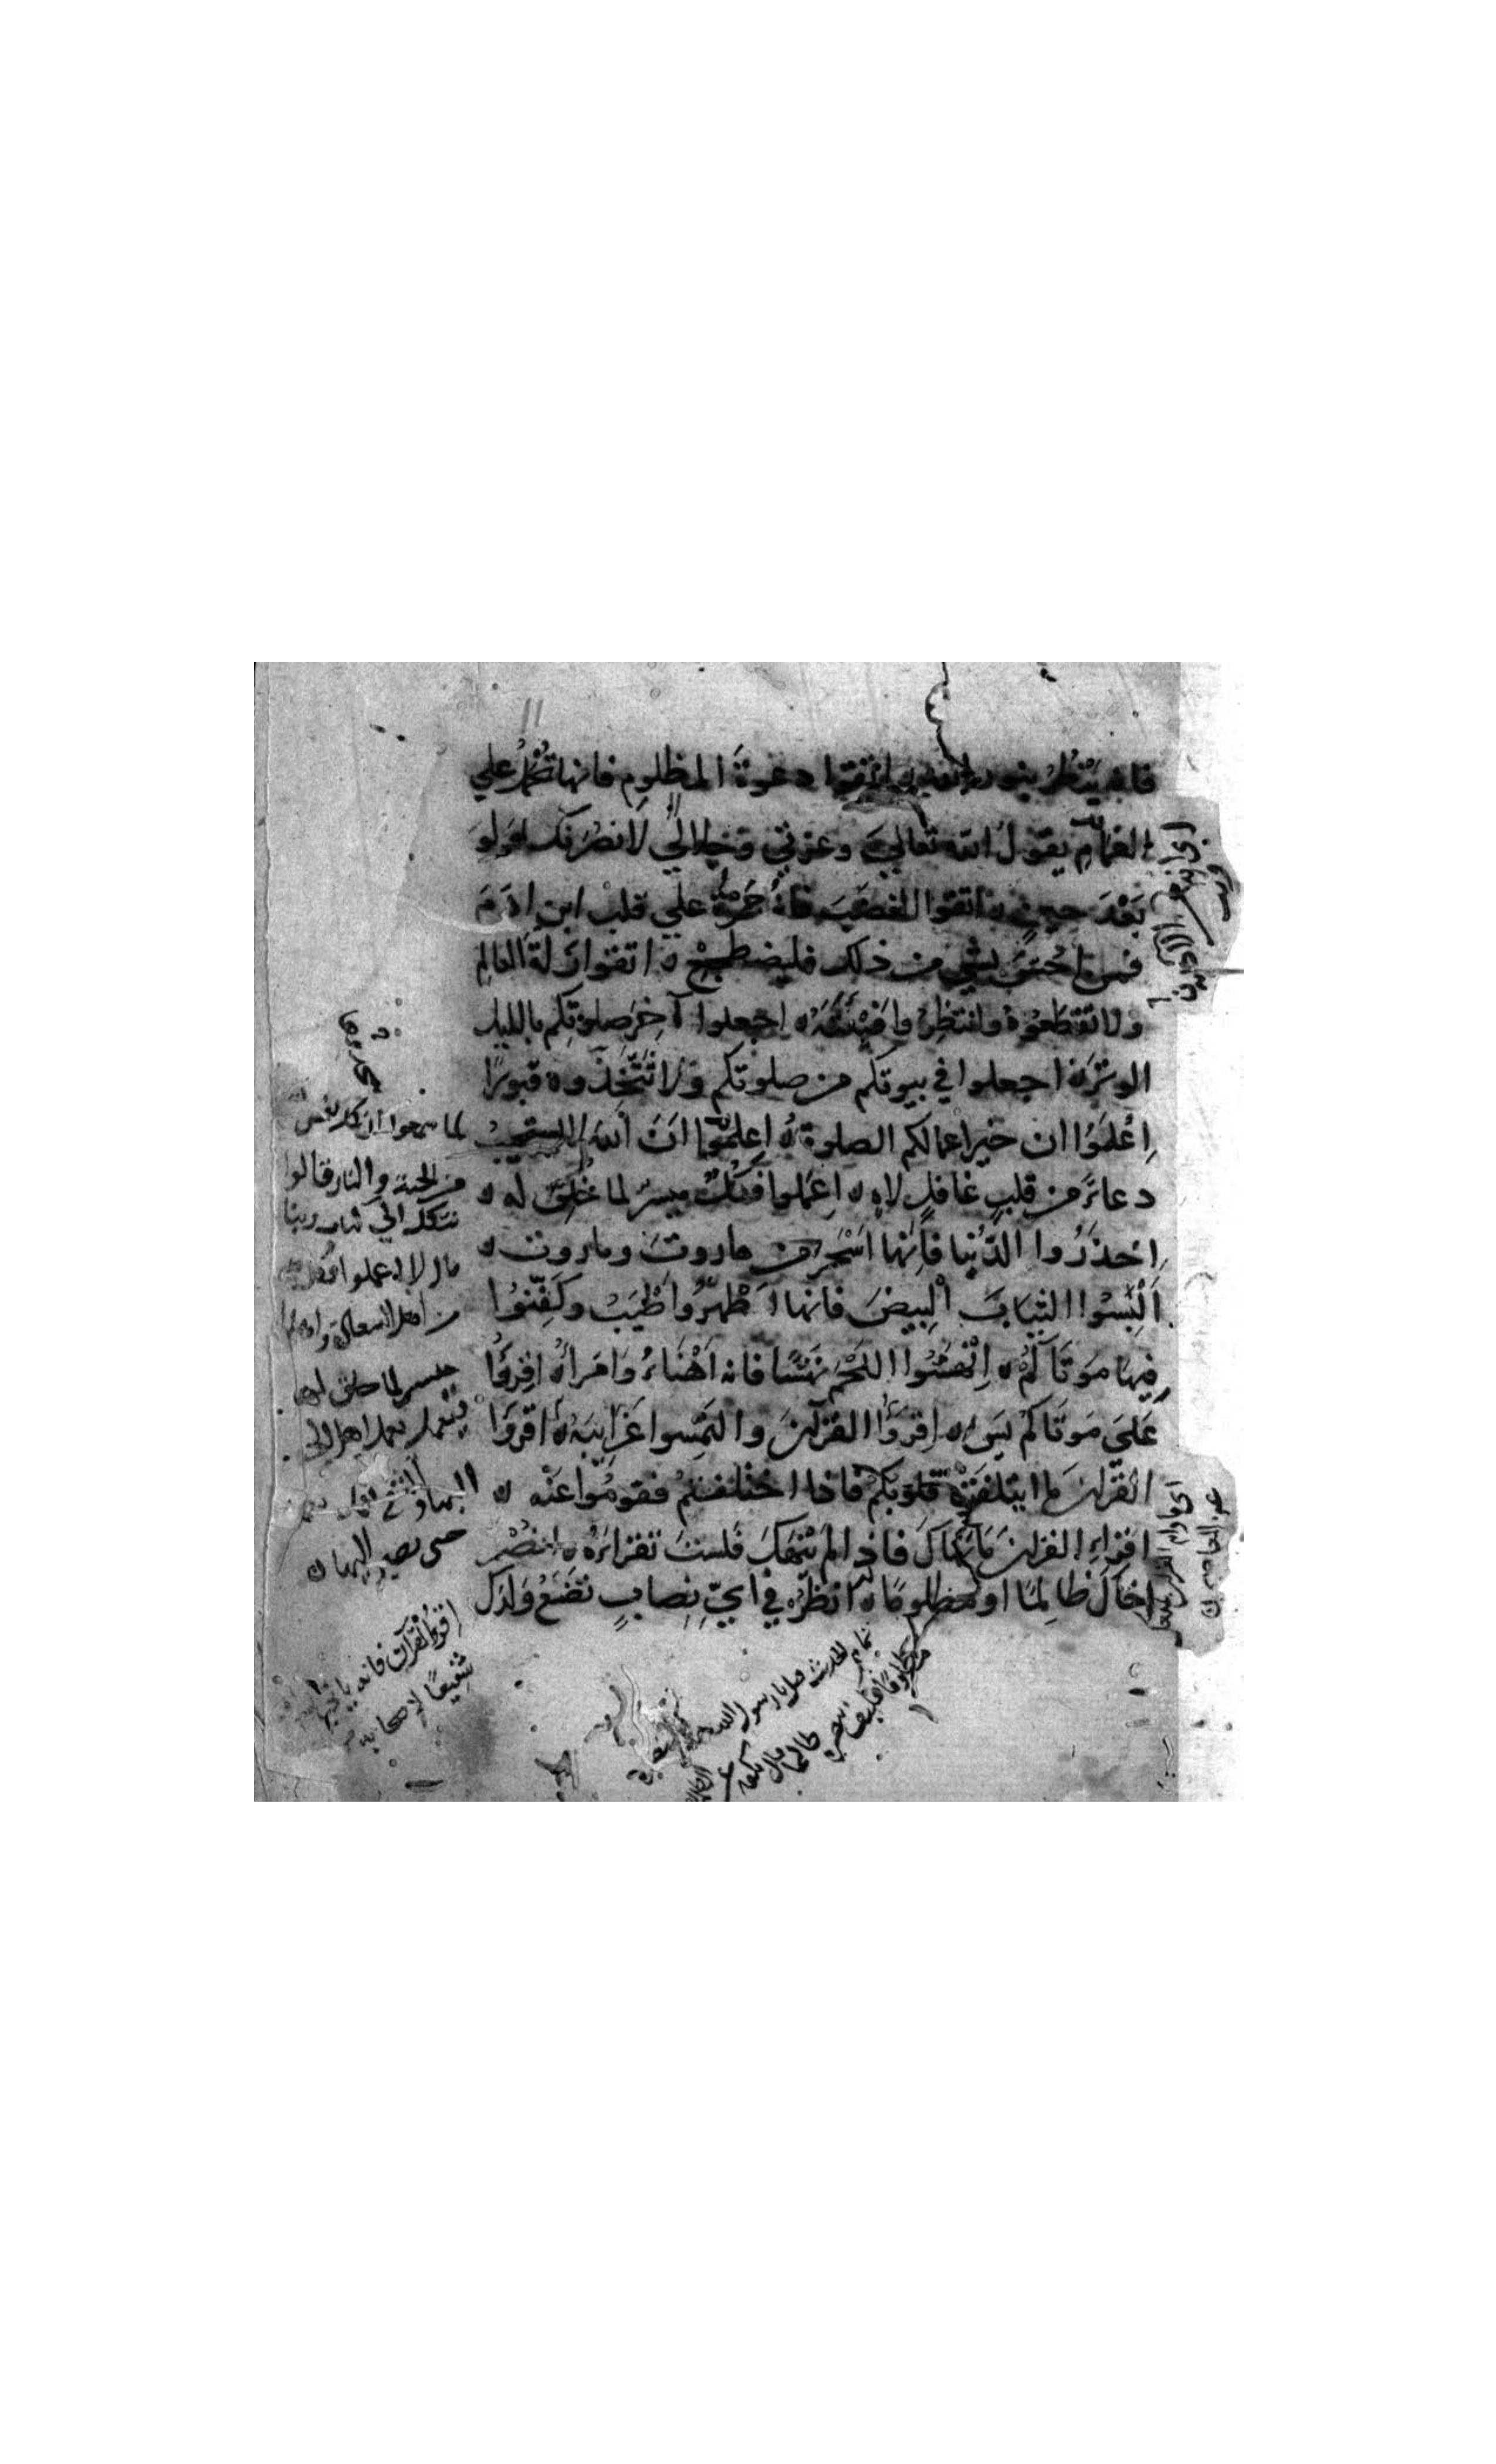 فانه ينظر بنور الله ه اتقوا دعوة المظلوم فانها تحمل علي
الغمام يقول الله تعالي وعزتي وجلالي لانصرنك ولو
بعد حين ه اتقوا الغضب فانه جمرة علي قلب ابن ادم
فمن احس بشي من ذلك فليضطجع ه اتقوا زلة العالم
ولا تقطعوه وانتظروا فيئته ه اجعلوا آخر صلوتكم بالليل
الوتر ه اجعلوا في بيوتكم من صلوتكم ولا تتخذوها قبورًا
اعلموا ان خير اعمالكم الصلوة ه اعلموا ان الله لا يستجيب
دعاءً من قلبٍ غافلٍ لاهٍ ه اعملوا فكلٌ ميسرٌ لما خلق له ه
احذروا الدنيا فانها اسحر من هاروت وماروت ه
البسوا الثياب البيض فانها اطهر واطيب وكفنوا
فيها موتاكم ه انهشوا اللحم نهشًا فانه اهناء وامراء ه اقرؤا
علي موتاكم يس ه اقرؤا القران والتمسوا غرايبه ه اقروا
القران ما ايتلفت قلوبكم فاذا اختلفتم فقوموا عنه ه
اقراء القران ما نهاك فاذا لم ينهك فلست تقراءه ه انصر
اخاك ظالمًا او مظلومًا ه انظر في اي نصابٍ تضع ولدك
لما سمعوا ان كل نفس
من الجنة والنار فقالوا
نتكل الي كتاب ربنا
قال لا اعملوا فكل
من اهل السعادة
ميسر لما خلق له
فيعمل بعمل اهل
حتى يصير اليها ه
اقرؤا القرآن فانه ياتي
شفيعًا لاصحابه
تمام الحديث قيل يا رسول الله
مظلومًا فكيف انصره ظالمًا قال تكفه عن الظلم